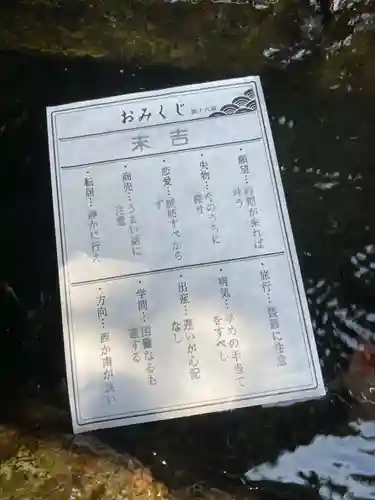 おみくじ 第十六番
末吉
・願望…時間が来れば
叶う
・失物…そのうちに
探せ
・恋愛…
ず
・商売…うまい話に
注意
・転居…静かに行え
・旅行…盗難に注意
・病気…早めの手当て
をすべし
・出産…遅いが心配
なし
・学問…困難なるも
達する
・方向…西か南が良い